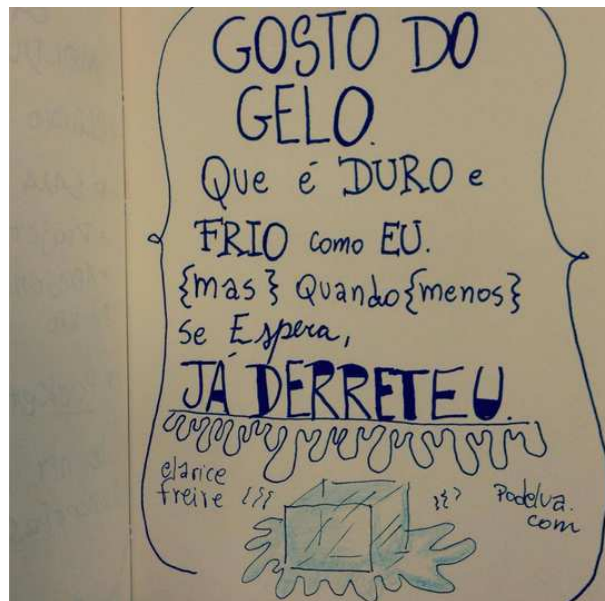 GOSTO DO
GELO.
Que é DURO e
FRIO como EU.
{mas} Quando {menos}
se Espera,
JÁ DERRETEU.
clarice
freire
Podelua.
com